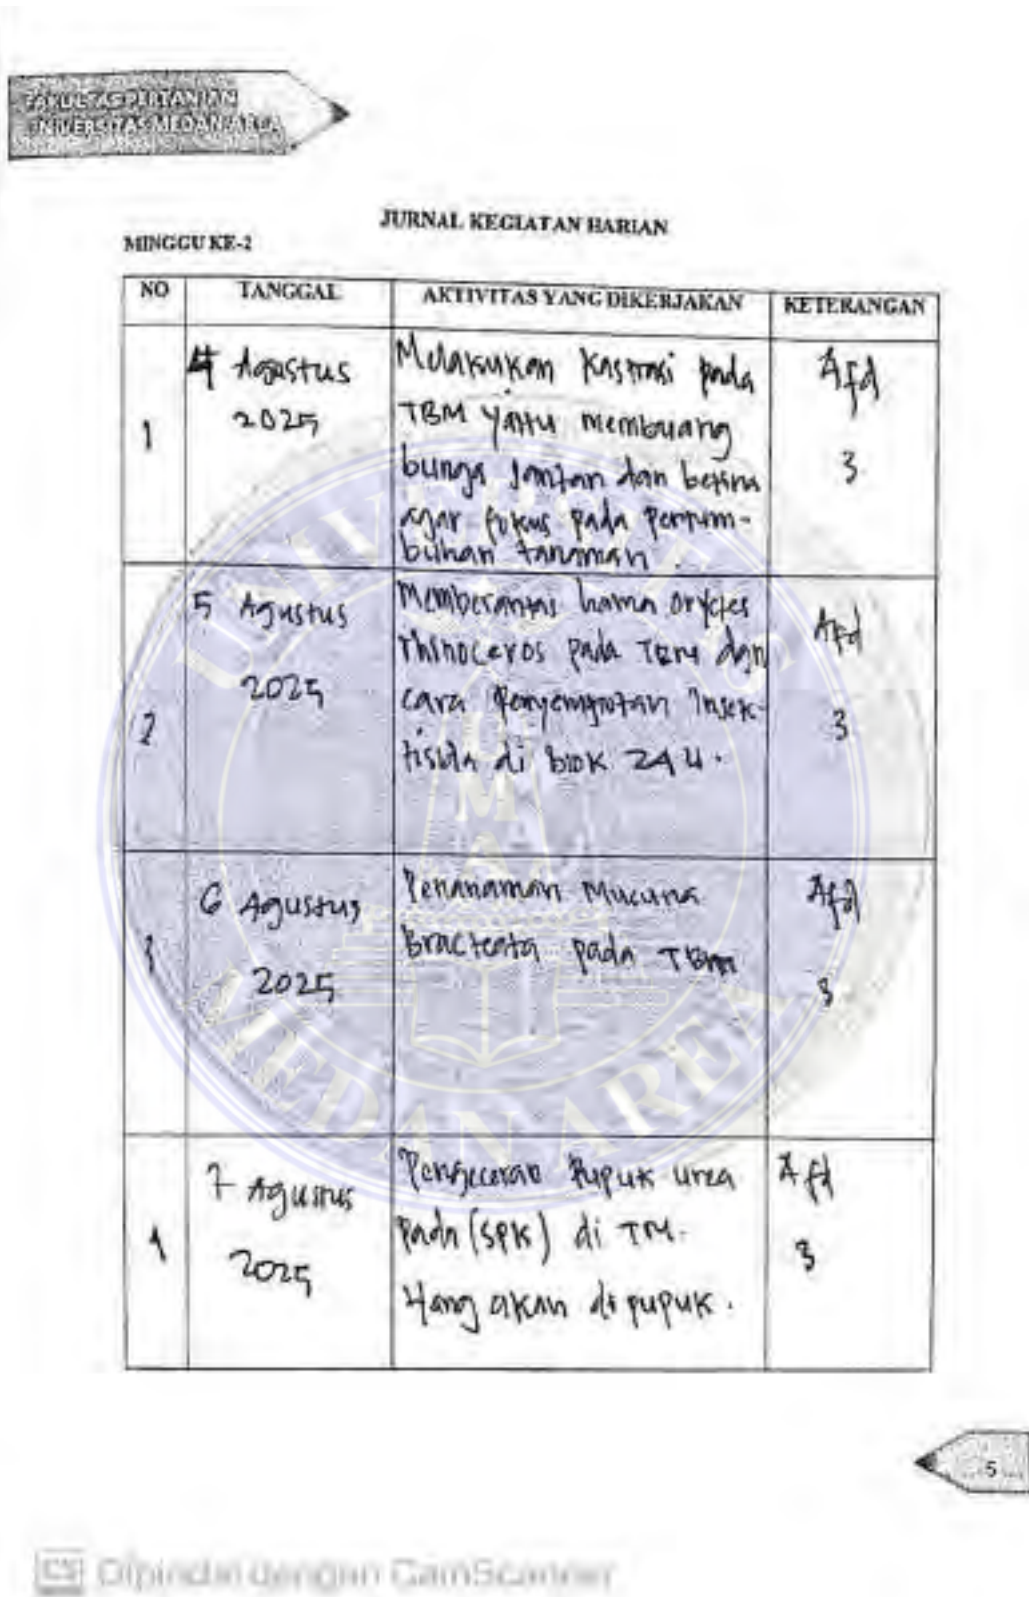 FAKULTAS PERTANIAN
UNIVERSITAS MEDAN AREA
JURNAL KEGIATAN HARIAN
MINGGU KE-2
NO TANGGAL AKTIVITAS YANG DIKERJAKAN KETERANGAN
1
4 Agustus
2025
Melakukan Kastrasi pada
TBM yaitu membuang
bunga Jantan dan betina
agar fokus pada Pertum-
buhan tanaman.
Afd
3
2
5 Agustus
2025
Memberantas hama oryctes
rhinoceros pada TBM dgn
cara Penyemprotan Insek-
tisida di blok 24 U.
Afd
3
3
6 Agustus
2025
Penanaman Mucuna
Bracteata pada TBM
Afd
3
4
7 Agustus
2025
Pengeceran Pupuk urea
pada (SPK) di TM.
Yang akan di pupuk.
Afd
3
5
UNIVERSITAS
MEDAN AREA
UMA
CS Dipindai dengan CamScanner